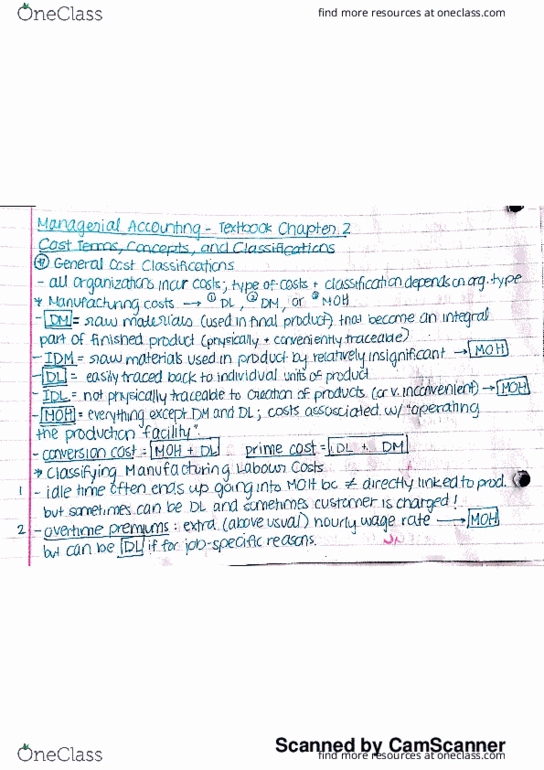 OneClass
find more resources at oneclass.com
Managerial Accounting - Textbook Chapter 2
Cost Terms, Concepts, and Classifications
General Cost Classifications
- all organizations incur costs; type of costs + classification depends on org. type
* Manufacturing costs → ① DL, ② DM, or ③ MOH
- DM = raw materials (used in final product) that become an integral
part of finished product (physically + conveniently traceable)
- IDM = raw materials used in product by relatively insignificant → MOH
- DL = easily traced back to individual units of product
- IDL = not physically traceable to creation of products (or v. inconvenient) → MOH
- MOH = everything except DM and DL; costs assosciated w/ "operating
the production facility".
- conversion cost = MOH + DL prime cost = DL + DM
* Classifying Manufacturing Labour Costs
1 - idle time often ends up going into MOH bc ≠ directly linked to prod.
but sometimes can be DL and sometimes customer is charged!
2 - overtime premiums: extra (above usual) hourly wage rate → MOH
but can be DL if for job-specific reasons.
Scanned by CamScanner
OneClass
find more resources at oneclass.com